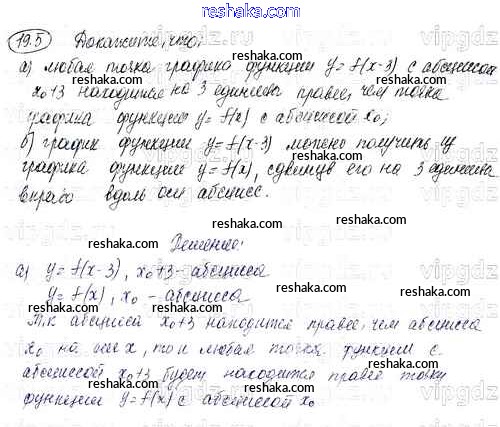 19.5 Докажите, что:
а) любая точка графика функции y = f(x-3) с абсциссой
x₀+3 находится на 3 единицы правее, чем точка
графика функции y = f(x) с абсциссой x₀;
б) график функции y = f(x-3) можно получить из
графика функции y = f(x), сдвинув его на 3 единицы
вправо вдоль оси абсцисс.
Решение:
а) y = f(x-3), x₀+3 - абсцисса
y = f(x), x₀ - абсцисса
Т.к абсциссой x₀+3 находится правее, чем абсцисса
x₀ на оси x, то и любая точка функции с
абсциссой x₀+3 будет находится правее точки
функции y = f(x) с абсциссой x₀
reshaka.com
reshaka.com
reshaka.com
reshaka.com
reshaka.com
reshaka.com
reshaka.com
reshaka.com
reshaka.com
reshaka.com
reshaka.com
reshaka.com
reshaka.com
vipgdz